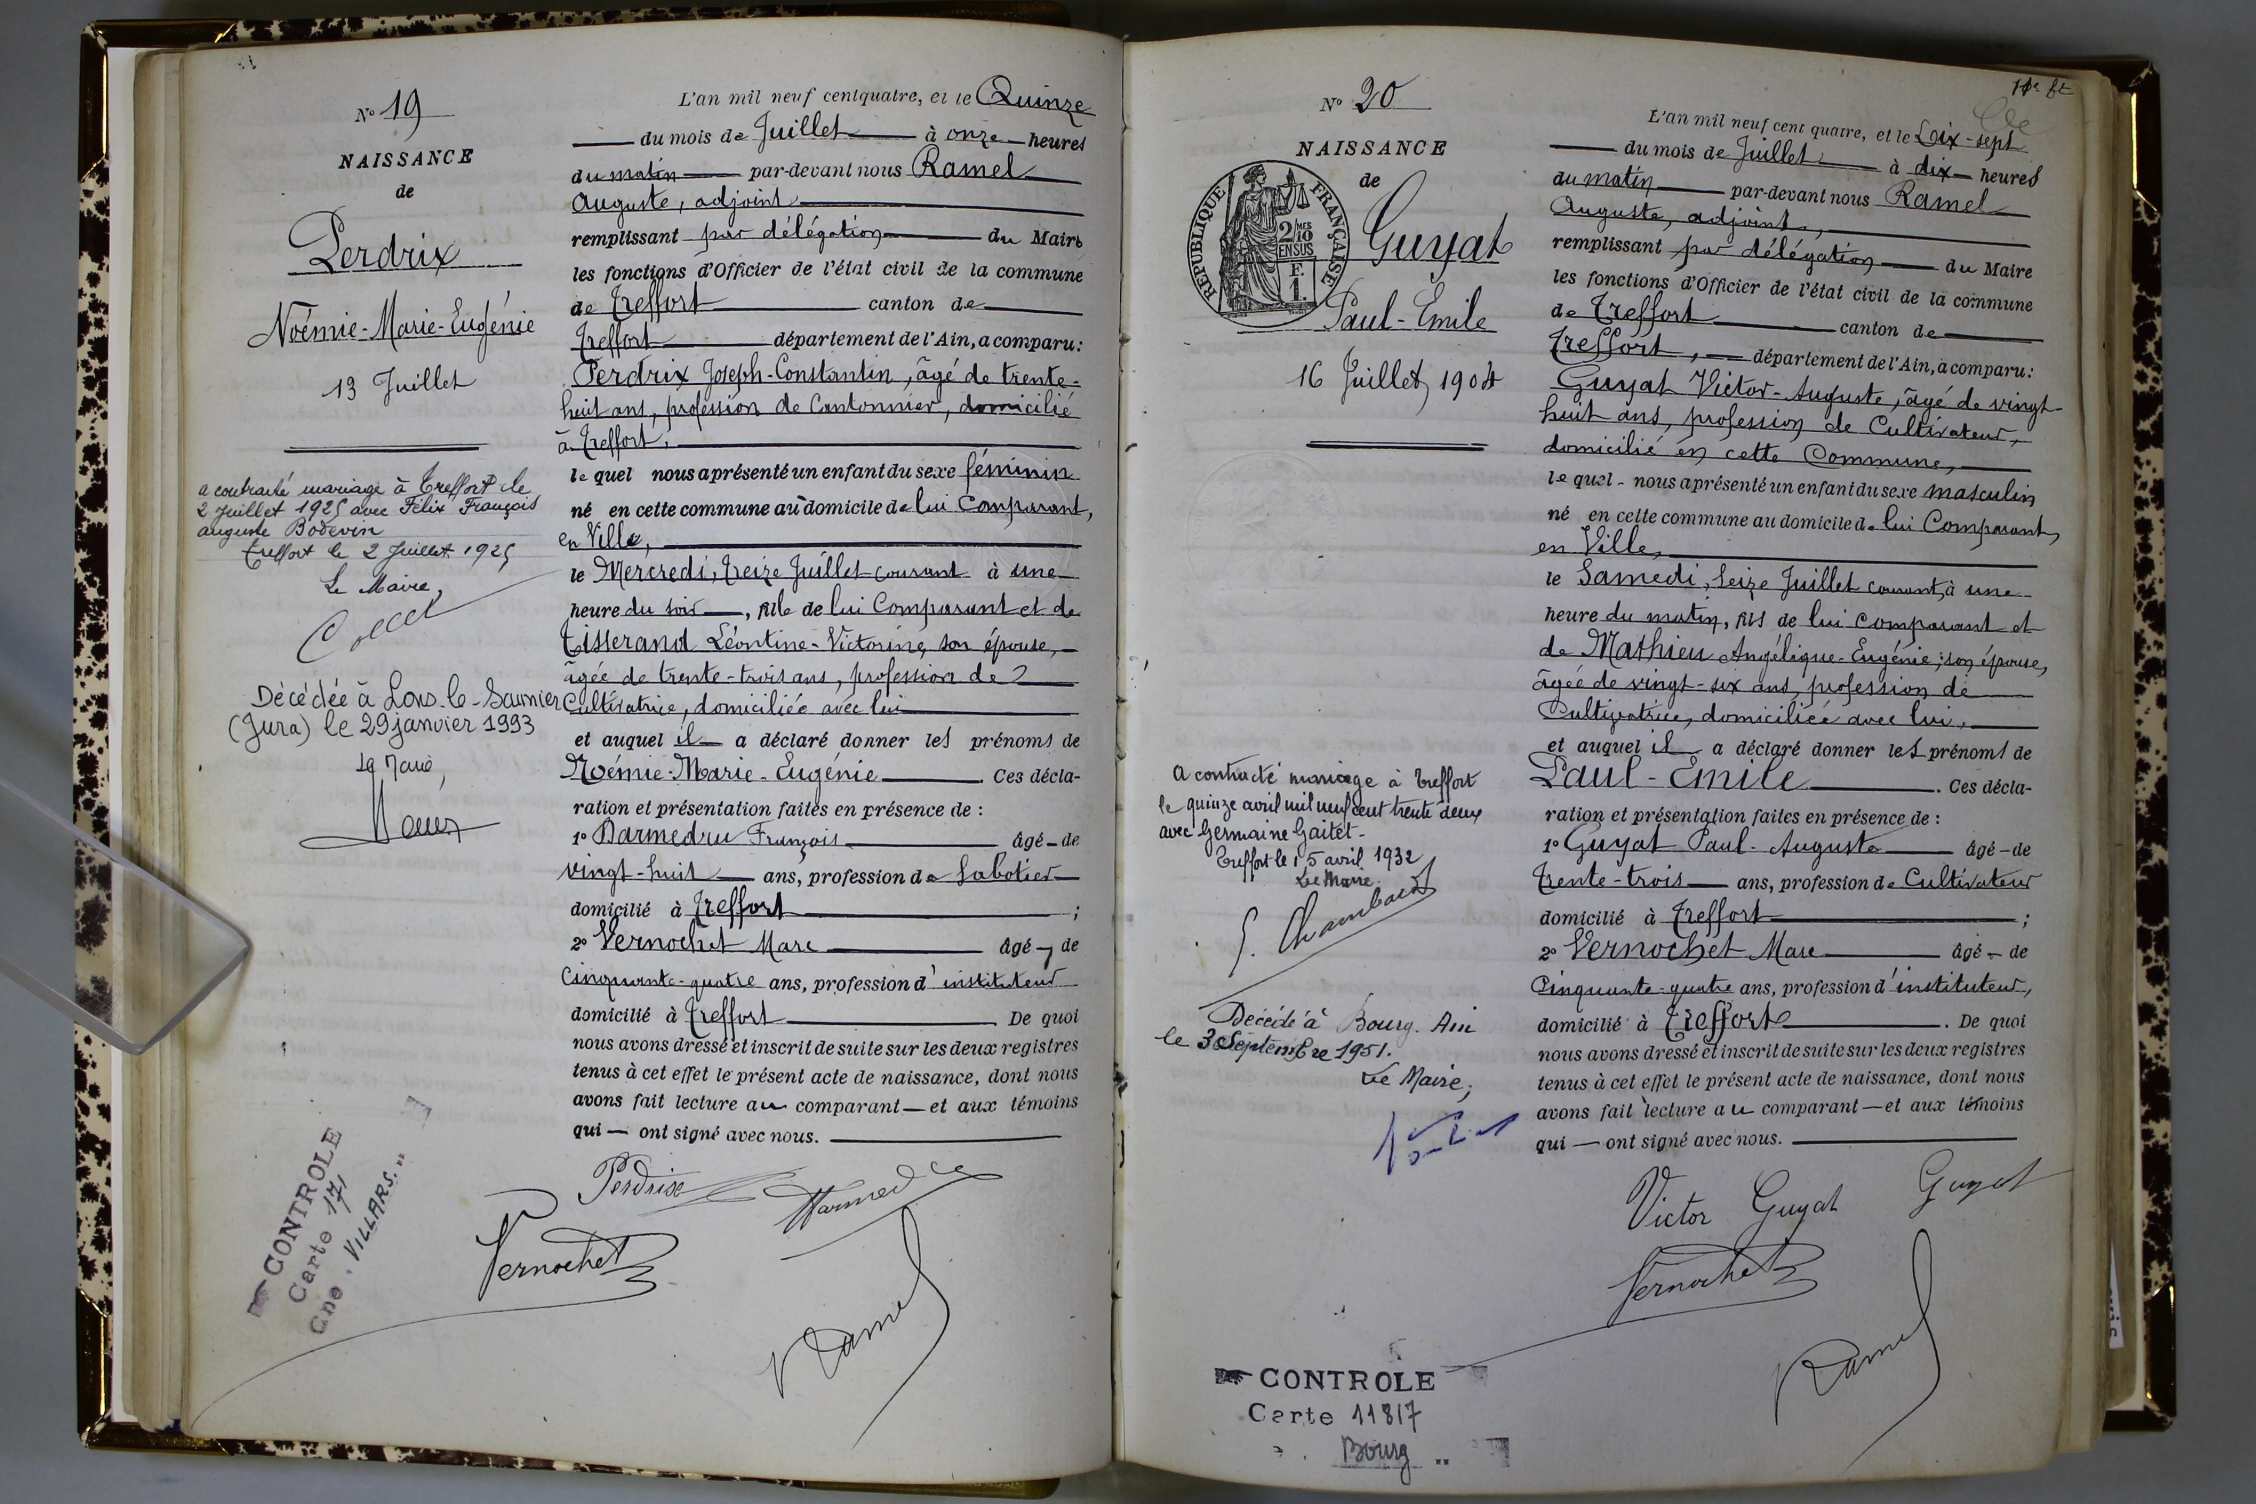 N° 19
NAISSANCE
de
Perdrix
Noémie-Marie-Eugénie
13 Juillet
a contracté mariage à Treffort le
2 juillet 1925 avec Félix François
auguste Bodevin
Treffort le 2 Juillet 1925
Le Maire,
Décédée à Lons-le-Saunier
(Jura) le 29 janvier 1993
CONTROLE
Carte 171
Cne. VILLARS.
L'an mil neuf cent quatre, et le Quinze
du mois de Juillet à onze heures
du matin par-devant nous Ramel
Auguste, adjoint
remplissant par délégation du Maire
les fonctions d'Officier de l'état civil de la commune
de Treffort canton de
Treffort département de l'Ain, a comparu:
Perdrix Joseph-Constantin, âgé de trente-
huit ans, profession de Cantonnier, domicilié
à Treffort,
le quel nous a présenté un enfant du sexe féminin
né en cette commune au domicile de lui Comparant,
en Ville,
le Mercredi, treize Juillet courant à une
heure du soir, fille de lui Comparant et de
Tisserand Léontine-Victorine, son épouse,
âgée de trente-trois ans, profession de
Cultivatrice, domiciliée avec lui
et auquel il a déclaré donner les prénoms de
Noémie-Marie-Eugénie. Ces décla-
ration et présentation faites en présence de :
1° Darmedru François âgé de
vingt-huit ans, profession de Sabotier
domicilié à Treffort ;
2° Vernochet Marc âgé de
Cinquante-quatre ans, profession d'instituteur
domicilié à Treffort De quoi
nous avons dressé et inscrit de suite sur les deux registres
tenus à cet effet le présent acte de naissance, dont nous
avons fait lecture au comparant — et aux témoins
qui — ont signé avec nous.
Perdrix Darmedru
Vernochet
Ramel
11e ft
N° 20
NAISSANCE
de
REPUBLIQUE FRANÇAISE
2/10 MES
EN SUS
F.
1.
Guyat
Paul-Emile
16 Juillet 1904
A contracté mariage à Treffort
le quinze avril mil neuf cent trente deux
avec Germaine Gaitet-
Treffort le 15 avril 1932
Le Maire.
Décédé à Bourg. Ain
le 30 Septembre 1951.
Le Maire,
CONTROLE
Carte 11817
Bourg
L'an mil neuf cent quatre, et le Dix-sept
du mois de Juillet à dix heures
du matin par-devant nous Ramel
Auguste, adjoint,
remplissant par délégation du Maire
les fonctions d'Officier de l'état civil de la commune
de Treffort canton de
Treffort, département de l'Ain, a comparu:
Guyat Victor-Auguste, âgé de vingt-
huit ans, profession de Cultivateur,
domicilié en cette Commune,
le quel nous a présenté un enfant du sexe masculin
né en cette commune au domicile de lui Comparant,
en Ville,
le Samedi, Seize Juillet courant, à une
heure du matin, fils de lui comparant et
de Mathieu Angélique-Eugénie, son épouse,
âgée de vingt-six ans, profession de
Cultivatrice, domiciliée avec lui,
et auquel il a déclaré donner les prénoms de
Paul-Emile. Ces décla-
ration et présentation faites en présence de :
1° Guyat Paul-Auguste âgé de
Trente-trois ans, profession de Cultivateur
domicilié à Treffort ;
2° Vernochet Marc âgé de
Cinquante-quatre ans, profession d'instituteur,
domicilié à Treffort. De quoi
nous avons dressé et inscrit de suite sur les deux registres
tenus à cet effet le présent acte de naissance, dont nous
avons fait lecture au comparant — et aux témoins
qui — ont signé avec nous.
Victor Guyat Guyat
Vernochet
Ramel